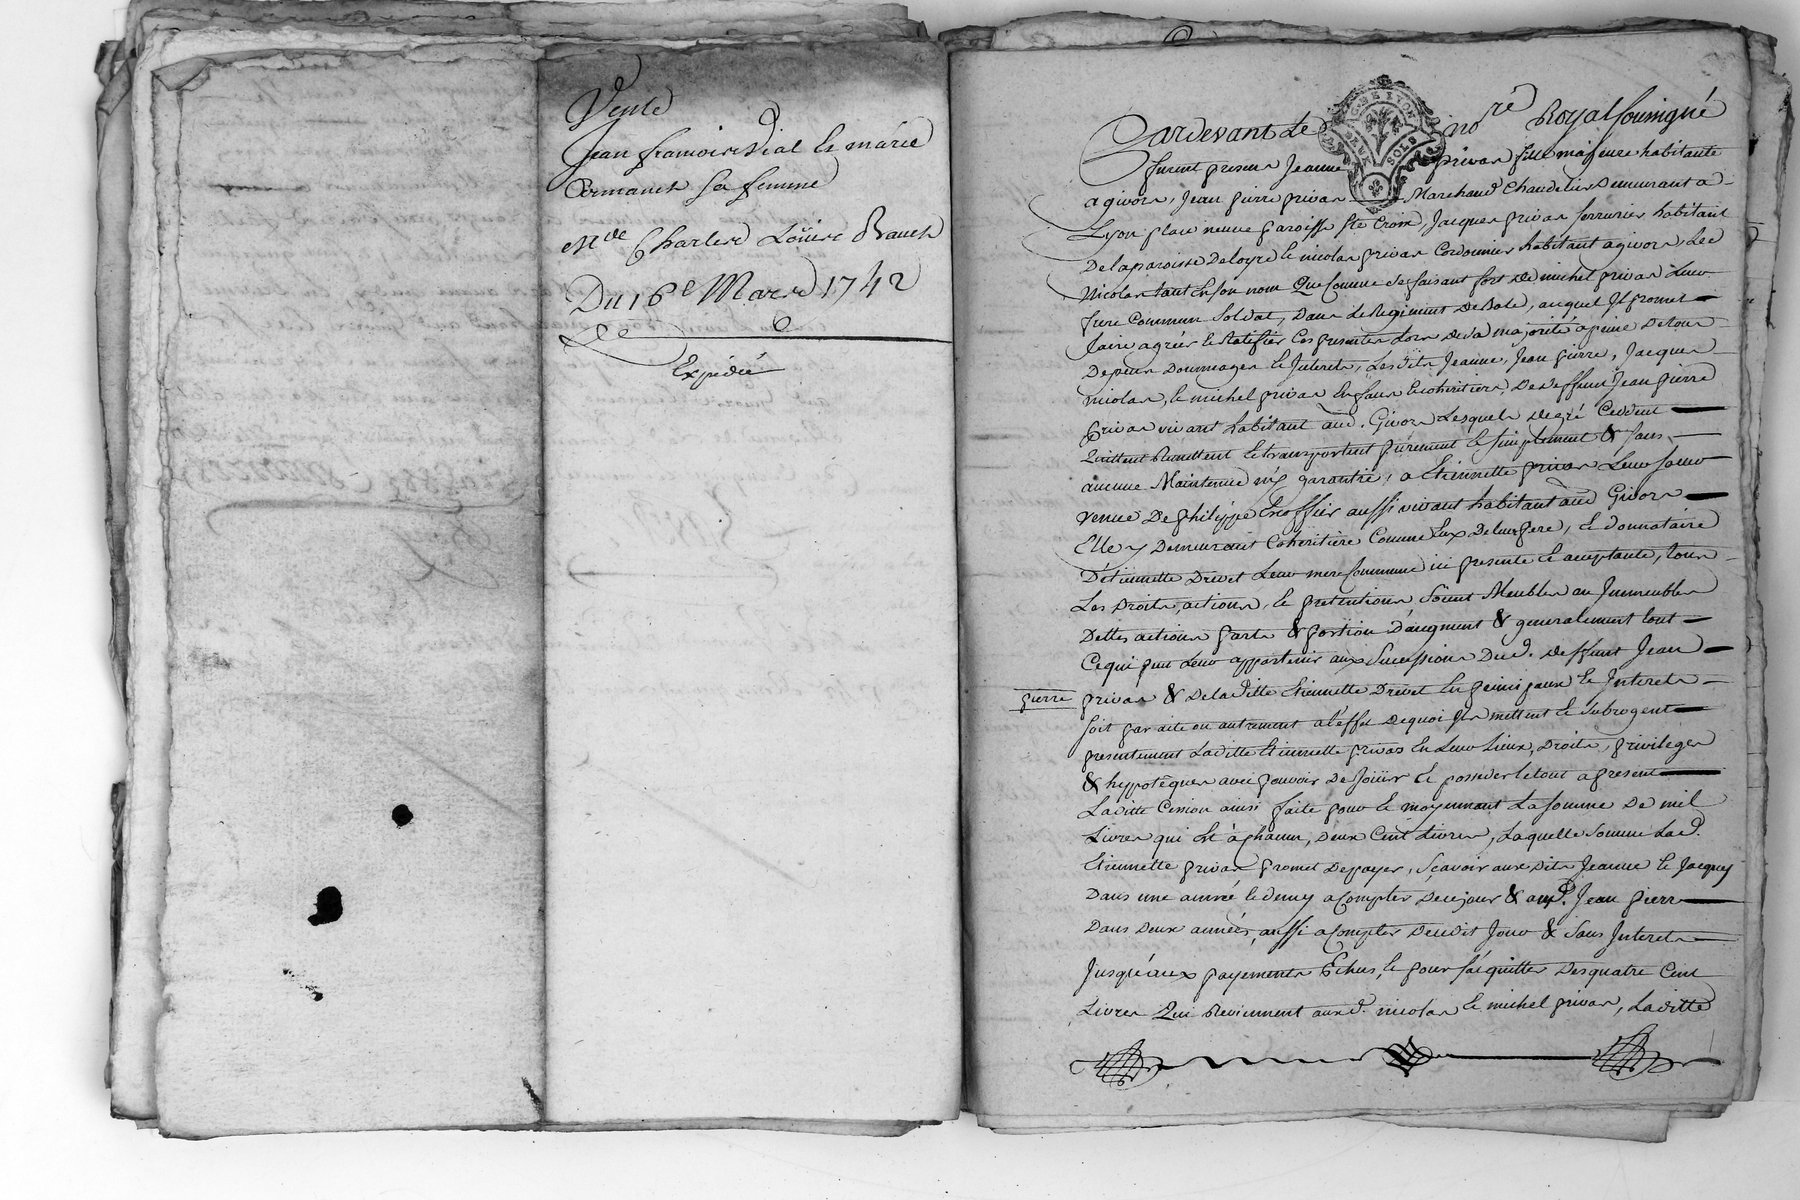 Vente
Jean francois Vial & marie
Permanet sa femme
Mde Charlese Loüise
Du 16e Mars 1742
Expedié
Pardevant Le no.re Royal soussigné
G. DE LYON
DEUX SOLS
furent presens Jeanne privas fille majeure habitante
a givors, Jean pierre privas Marchand Chandelier Demeurant a
Lyon place neuve paroisse ste Croix, Jacques privas serrurier habitant
De la paroisse De loyre & nicolas privas Cordonnier habitant a givors, Led
Nicolas tant En son nom Que Comme se faisant fort de michel privas Leur
frere Commun Soldat, Dans Le Regiment De Bale, auquel Il promet
faire agréer & Ratifier Ces presentes Lors de sa majorité a peine De tous
Depens Dommages & Interets, Lesdits Jeanne, Jean pierre, Jacques
nicolas, & michel privas Enfans & coheritiers, De deffunt Jean pierre
privas vivant habitant aud. Givors Lesquels de gré Cedent
Quittent Remettent & transportent purement & simplement & sans
aucune Maintenue ny garantie, a Etiennette privas Leur soeur
veuve De philippe aussi vivant habitant aud Givors
Elle y Demeurant Coheritiere Comme Eux De leur pere, & Donnataire
D'Etiennette Drevet Leur mere Commune ici presente & acceptante, tous
Les Droits, actions, & pretentions soient Meubles ou Immeubles
Dettes actions parts & portion D'augment & generalement tout
Ce qui peut Leur appartenir aux Successions Dud. deffunt Jean
pierre privas & De la ditte Etiennette Drevet En principaux & Interets
soit par aite ou autrement a l'effet De quoi Ils mettent & subrogent
presentement Laditte Etiennette privas En Leur Lieux, Droits, privileges
& hyppotêques avec pouvoir De Joüir & posseder le tout a present
Laditte Cession ainsi faite pour & moyennant La somme De mil
Livres qui Est à chacun, Deux Cent Livres, Laquelle somme Lad.
Etiennette privas promet De payer, Sçavoir aux dits Jeanne & Jacques
Dans une année & demy a Compter De ce jour & aud. Jean pierre
Dans Deux années, aussi a Compter De ce dit Jour & Sans Interets
Jusqu'aux payements Echus, & pour s'acquitter Des quatre Cent
Livres Qui Reviennent auxd. nicolas & michel privas, Laditte